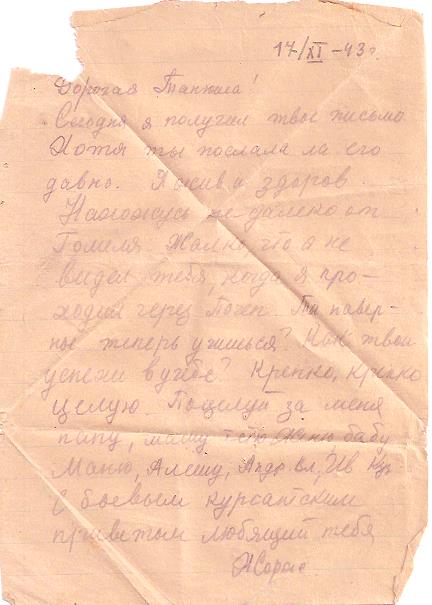 17/XI -43г.
Дорогая Танюша!
Сегодня я получил твое письмо
Хотя ты послала ла его
давно. Я жив и здоров.
Нахожусь не далеко от
Гомеля. Жалко, что я не
видел тебя, когда я про-
ходил через Почеп. Ты навер-
ное теперь учишься? Как твои
успехи в учебе? Крепко, крепко
целую. Поцелуй за меня
папу, маму, Женю, бабу
Маню, Алешу,
С боевым курсантским
приветом любящий тебя
Жорж